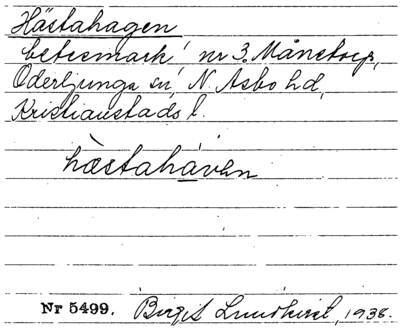 Hästahagen
betesmark, nr 3. Månstorp,
Oderljunga sn, N. Åsbo hd,
Kristianstads l.
hæstahávεn
Nr 5499. Birgit Lundkvist, 1936.